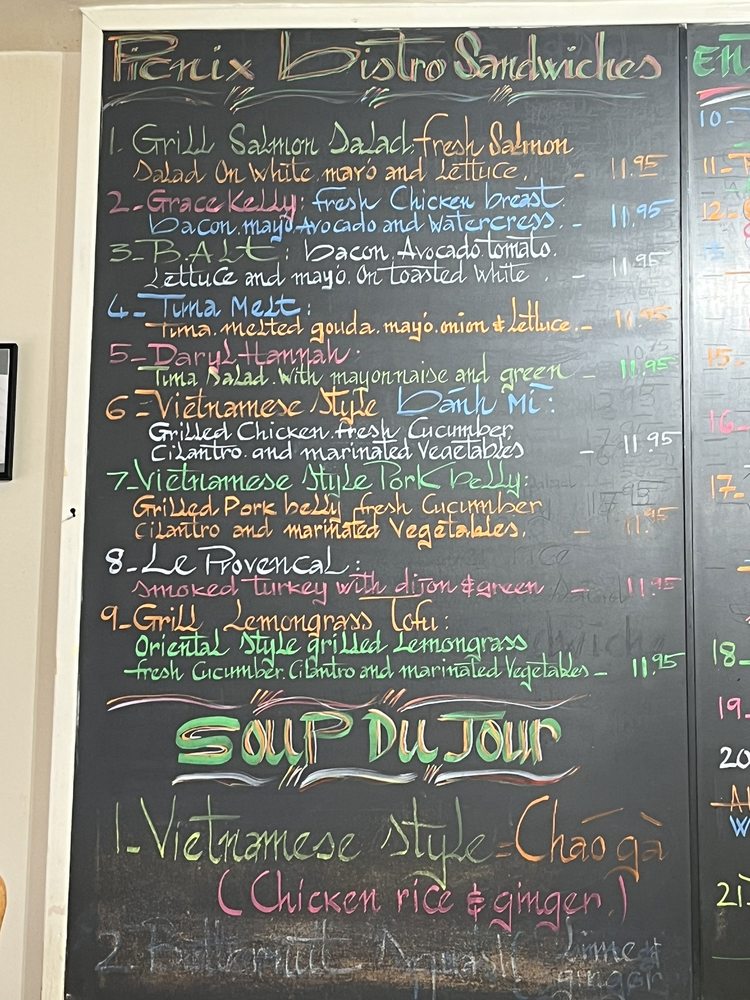 Picnix Bistro Sandwiches
1. Grill Salmon Salad, fresh Salmon
Salad On White, mayo and Lettuce. - 11.95
2-Grace Kelly: fresh Chicken breast.
bacon, mayo, Avocado and Watercress. - 11.95
3-B.A.L.t: bacon, Avocado, tomato.
Lettuce and mayo. On toasted White. - 11.95
4-Tuna Melt:
Tuna, melted gouda, mayo, onion & Lettuce. - 11.95
5-Daryl Hannah:
Tuna Salad, With mayonnaise and green - 11.95
6-Vietnamese Style Banh Mi:
Grilled Chicken, fresh Cucumber,
Cilantro, and marinated Vegetables - 11.95
7-Vietnamese Style Pork belly:
Grilled Pork belly, fresh Cucumber
Cilantro and marinated Vegetables. - 11.95
8-Le Provencal:
smoked turkey with dijon & green - 11.95
9-Grill Lemongrass Tofu:
Oriental Style grilled Lemongrass
fresh Cucumber, Cilantro and marinated Vegetables - 11.95
SOUP DU JOUR
1-Vietnamese style = Cháo gà
(Chicken rice & ginger)
2. Butternut Squash Lime &
ginger
10-
11-
12-
15-
16-
17-
18-
19-
20
W
21